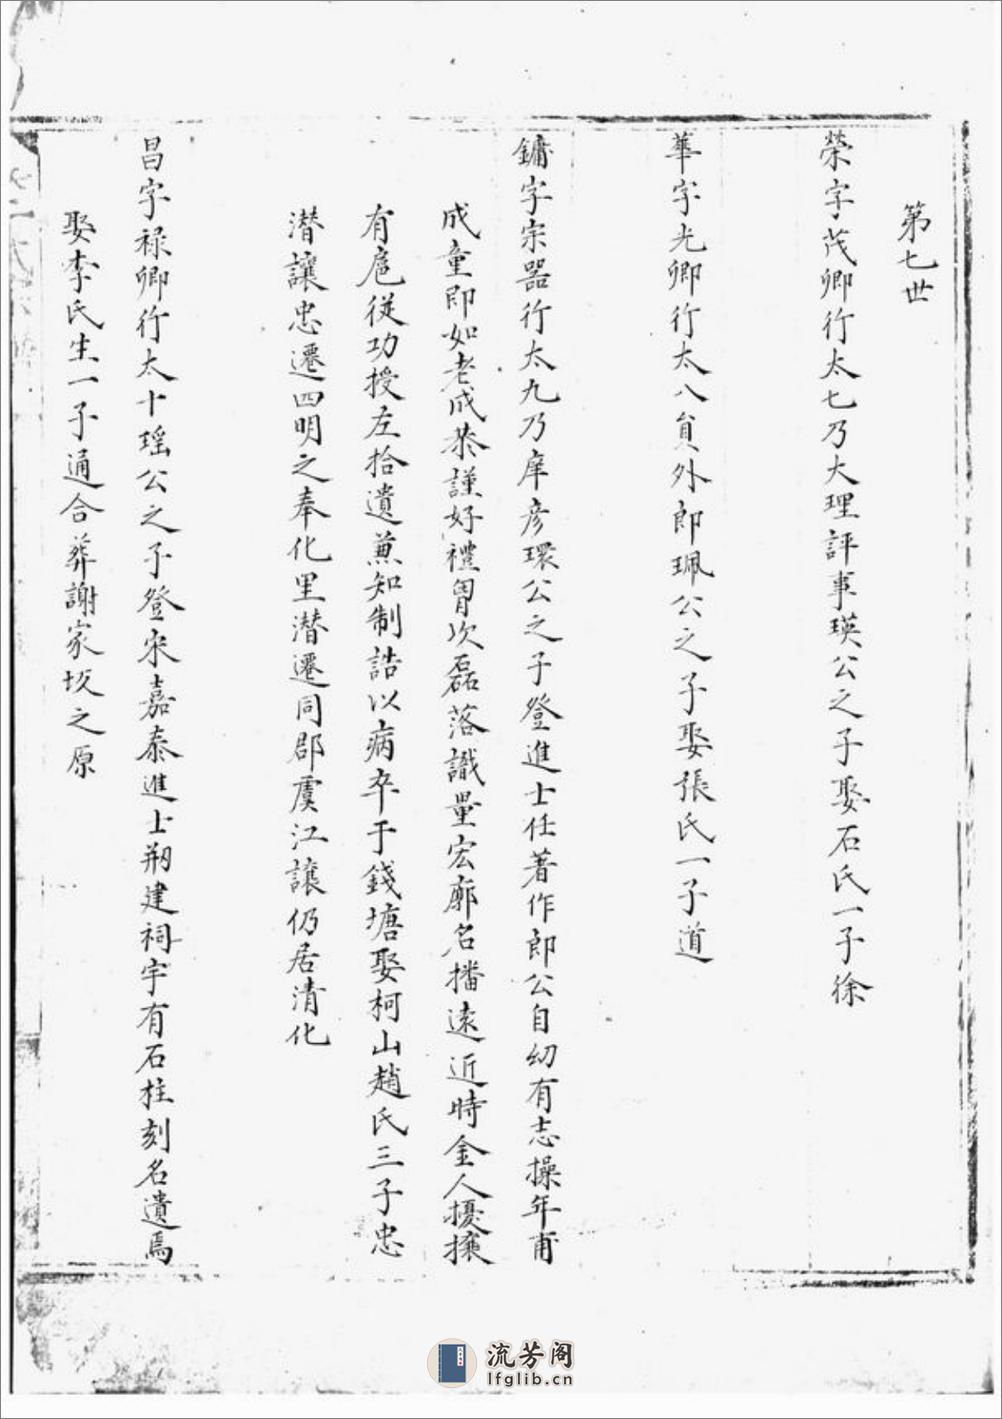 第七世
榮字茂卿行太七乃大理評事瑛公之子娶石氏一子徐
華字光卿行太八員外郎珮公之子娶張氏一子道
鏞字宗器行太九乃庠彥環公之子登進士任著作郎公自幼有志操年甫
成童即如老成恭謹好禮胷次磊落識量宏廓名播遠近時金人擾攘
有扈從功授左拾遺蒹知制誥以病卒于錢塘娶柯山趙氏三子忠
潛讓忠遷四明之奉化里潛遷同郡虞江讓仍居清化
昌字祿卿行太十瑤公之子登宋嘉泰進士剏建祠宇有石柱刻名遺焉
娶李氏生一子通合葬謝家坂之原
流芳阁
lfglib.cn